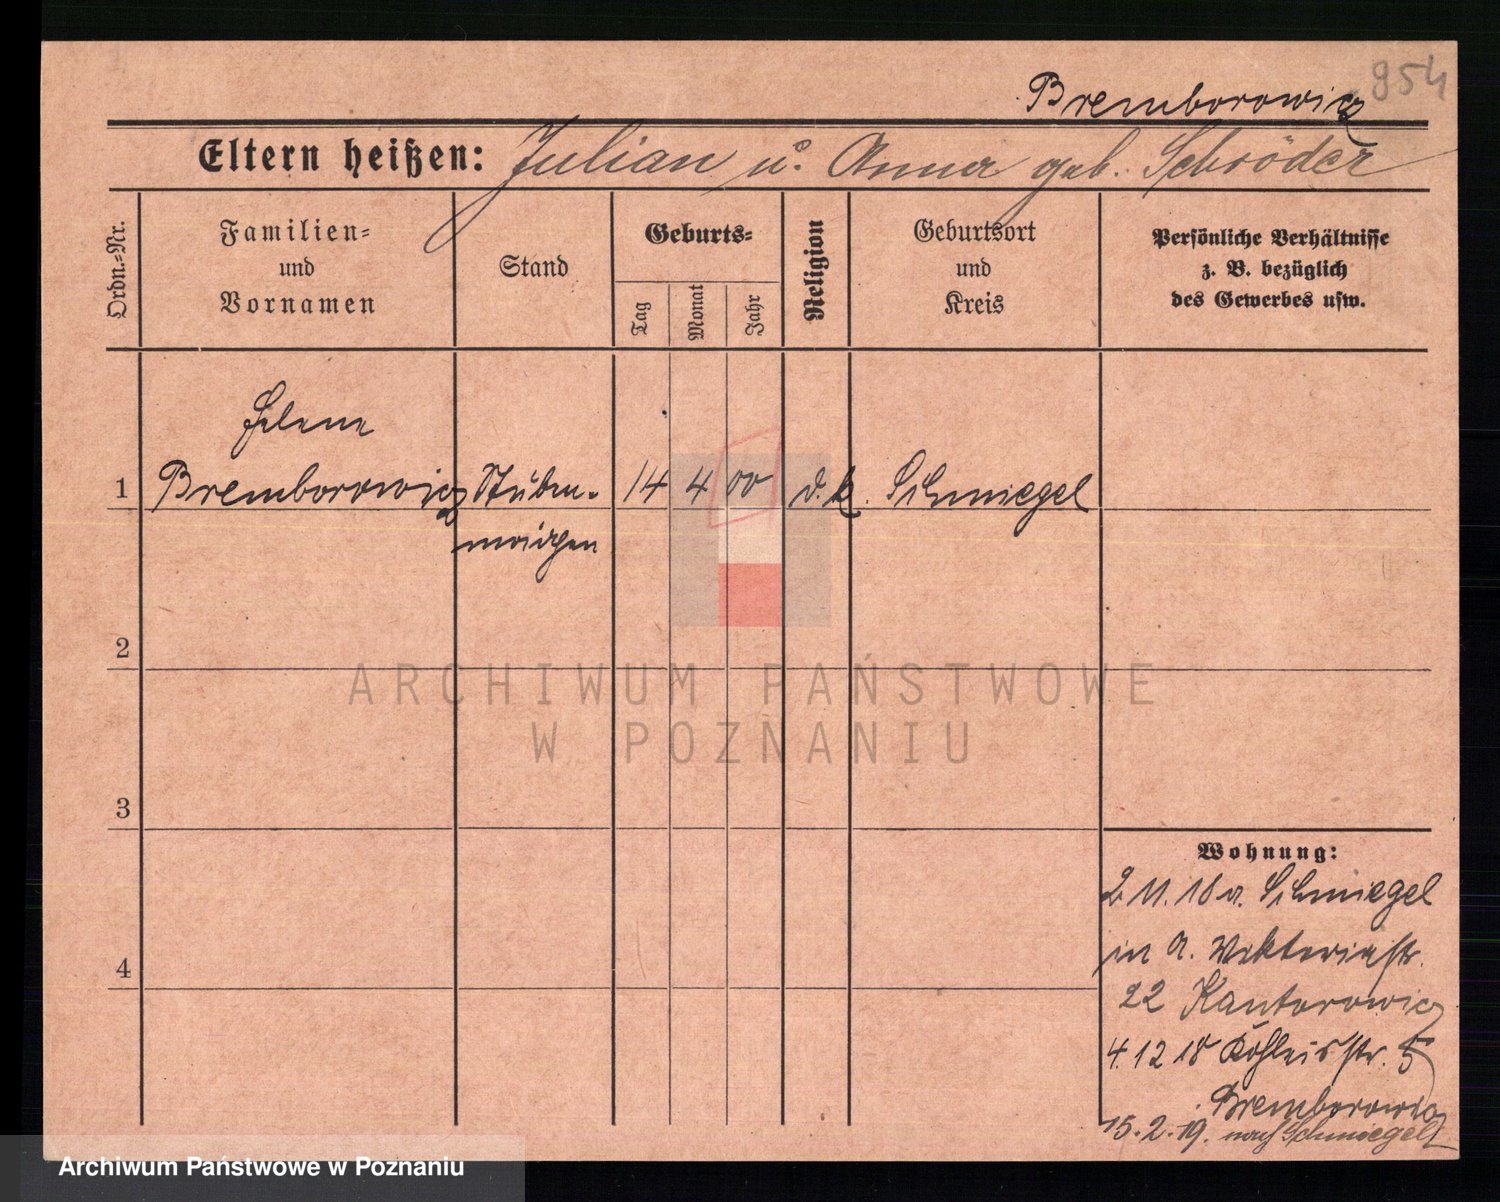 954
Bremborowicz
Eltern heißen: Julian u. Anna geb. Schröder
Ordn.-Nr.
Familien-
und
Vornamen
Stand
Geburts-
Tag
Monat
Jahr
Religion
Geburtsort
und
Kreis
Persönliche Verhältnisse
z. B. bezüglich
des Gewerbes usw.
Helene
1 Bremborowicz Stuben- 14 4 00 d. k. Schmiegel
mädchen
2
ARCHIWUM PAŃSTWOWE
W POZNANIU
3
Wohnung:
2 11. 18 a. Schmiegel
in a. Viktoriastr.
4
22 Kantorowicz
4. 12 18 str. 5
Bremborowicz
15. 2. 19. nach Schmiegel
Archiwum Państwowe w Poznaniu